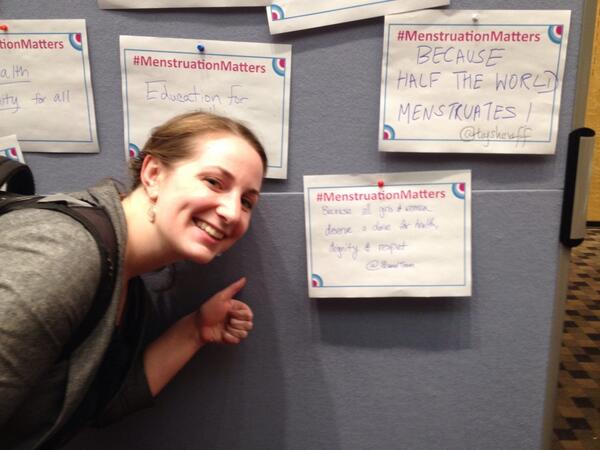 ionMatters
alth
ity for all
#MenstruationMatters
Education for
#MenstruationMatters
BECAUSE
HALF THE WORLD
MENSTRUATES!
#MenstruationMatters
Because all girls & women
deserve a for health,
dignity & respect